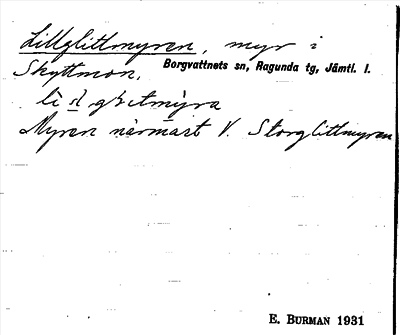 Lillglittmyren, myr i
Skyttmon, Borgvattnets sn, Ragunda tg, Jämtl. l.
Myren närmast V. Storglittmyren
E. BURMAN 1931